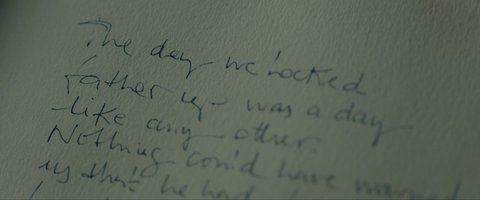 The day we locked
father up was a day
like any other.
Nothing could have warned
us that he had